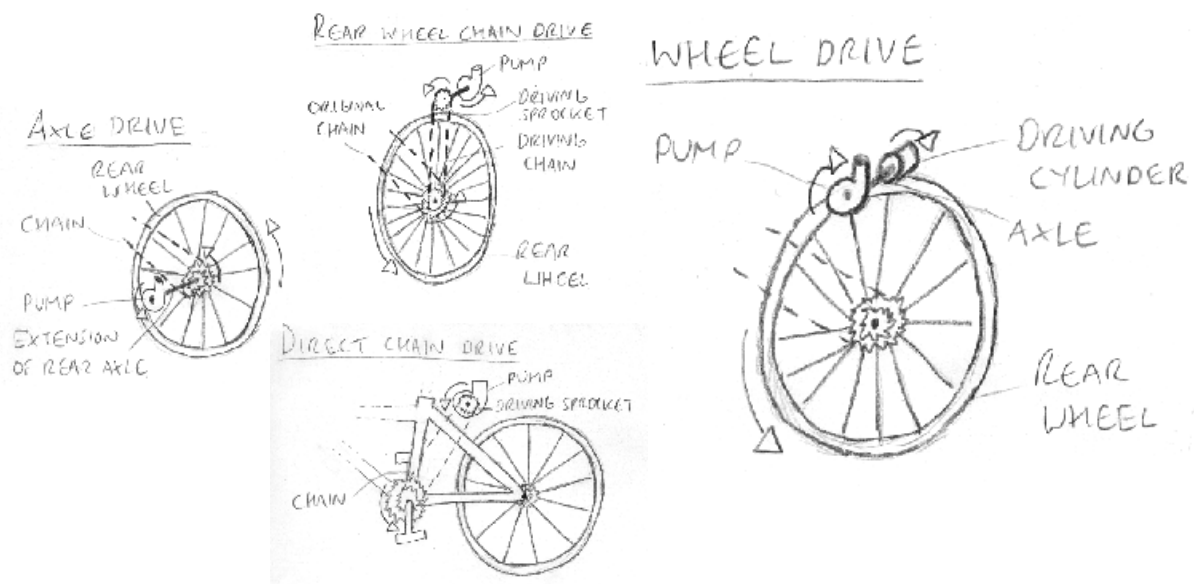 AXLE DRIVE
REAR
WHEEL
CHAIN
PUMP
EXTENSION
OF REAR AXLE
REAR WHEEL CHAIN DRIVE
PUMP
DRIVING
SPROCKET
ORIGINAL
CHAIN
DRIVING
CHAIN
REAR
WHEEL
DIRECT CHAIN DRIVE
PUMP
DRIVING SPROCKET
CHAIN
WHEEL DRIVE
PUMP
DRIVING
CYLINDER
AXLE
REAR
WHEEL